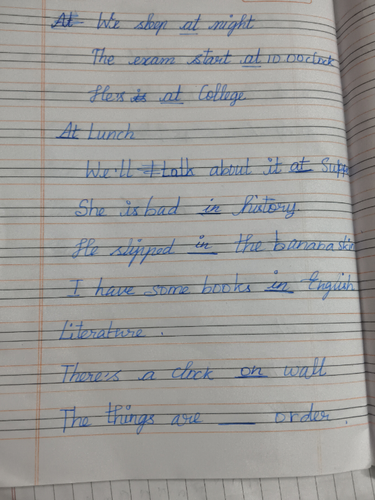 At We sleep at night
The exam start at 10 o'clock
Hers is at College
At Lunch
We'll talk about it at Supp
She is bad in history.
He slipped in the banana skin
I have some books in English
Literature .
There's a clock on wall
The things are ___ order.